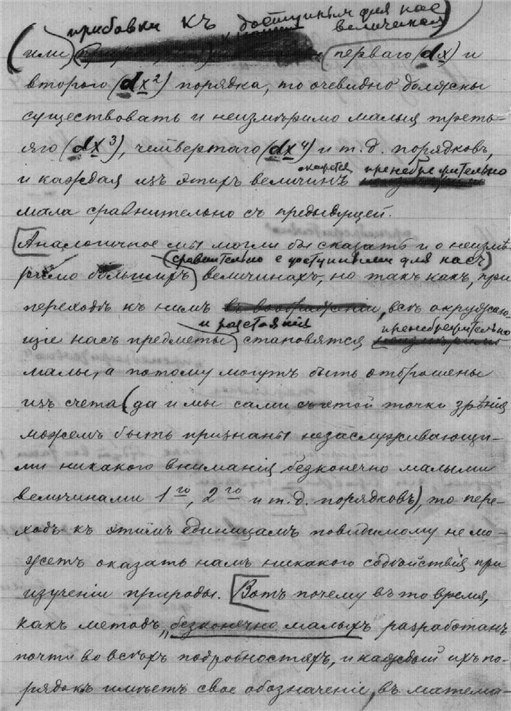 прибавки къ доступнымъ для нас величинам
(или) перваго (dx) и
второго (dx²) порядка, то очевидно должны
существовать и неизмѣримо малыя треть-
яго (dx³), четвертаго (dx⁴) и т.д. порядковъ,
и каждая изъ этихъ величинъ окажется пренебрежительно
мала сравнительно съ предыдущей.
[Аналогичное мы могли бы сказать и о неизмѣ-
(сравнительно с доступными для насъ)
римо большихъ величинахъ, но такъ какъ, при
переходѣ къ нимъ, всѣ окружаю-
и разстоянія пренебрежительно
щіе насъ предметы становятся
малы, а потому могутъ быть отброшены
изъ счета (да и мы сами съ этой точки зрѣнія
можемъ быть признаны незаслуживающи-
ми никакого вниманія безконечно малыми
величинами 1го, 2го и т.д. порядковъ), то пере-
ходъ къ этимъ единицамъ повидимому не мо-
жетъ оказать намъ никакого содѣйствія при
изученіи природы. [Вотъ почему въ то время,
какъ методъ „безконечно малыхъ" разработанъ
почти во всѣхъ подробностяхъ, и каждый ихъ по-
рядокъ имѣетъ свое обозначеніе, въ матема-